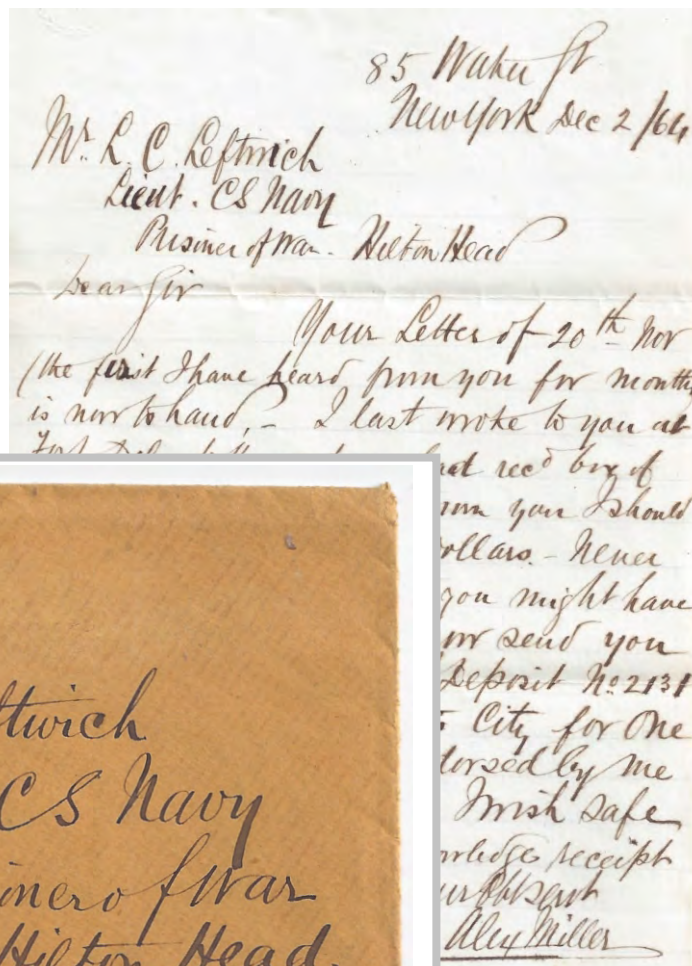 85 Water St
New York Dec 2/64
Mr. L. C. Leftwich
Lieut. CS Navy
Prisiner of War - Hilton Head
Dear Sir
Your Letter of 20th Nov
(the first I have heard from you for months
is now to hand, - I last wrote to you at
Fort
recd box of
you I should
ollars. - Never
you might have
send you
Deposit No 2131
City for One
dorsed by me
I wish safe
wledge receipt
ur Obt Servt
Alex Miller
ftwich
CS Navy
iner of War
Hilton Head.